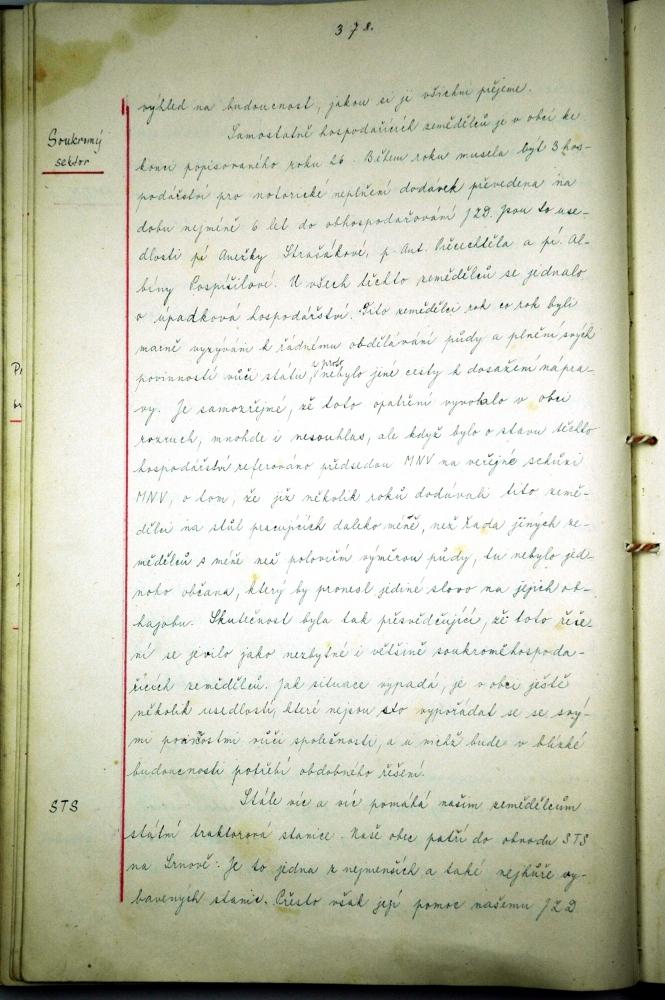 378.
výhled na budoucnost, jakou si je všichni přejeme.
Soukromý
sektor
Samostatně hospodařících zemědělců je v obci ke
konci popisovaného roku 26. Během roku musela být 3 hos-
podářství pro notorické neplnění dodávek převedena na
dobu nejméně 6 let do obhospodařování JZD. Jsou to use-
dlosti pí Anežky Strašákové, p. Ant. Přecechtěla a pí. Al-
bíny Pospíšilové. U všech těchto zemědělců se jednalo
o úpadková hospodářství. Tito zemědělci rok co rok byli
marně vyzýváni k řádnému obdělávání půdy a plnění svých
povinností vůči státu, a proto nebylo jiné cesty k dosažení nápra-
vy. Je samozřejmé, že toto opatření vyvolalo v obci
rozruch, mnohde i nesouhlas, ale když bylo o stavu těchto
hospodářství referováno předsedou MNV na veřejné schůzi
MNV, o tom, že již několik roků dodávali tito země-
dělci na stůl pracujících daleko méně, než řada jiných ze-
mědělců s méně než poloviční výměrou půdy, tu nebylo jed-
noho občana, který by pronesl jediné slovo na jejich ob-
hajobu. Skutečnost byla tak přesvědčující, že toto řeše-
ní se jevilo jako nezbytné i většině soukroměhospoda-
řících zemědělců. Jak situace vypadá, je v obci ještě
několik usedlostí, které nejsou sto vypořádat se se svý-
mi povinostmi vůči společnosti, a u nichž bude v blízké
budoucnosti potřebí obdobného řešení.
STS
Stále víc a víc pomáhá našim zemědělcům
státní traktorová stanice. Naše obec patří do obvodu STS
na Srnově. Je to jedna z nejmenších a také nejhůře vy-
bavených stanic. Přesto však její pomoc našemu JZD